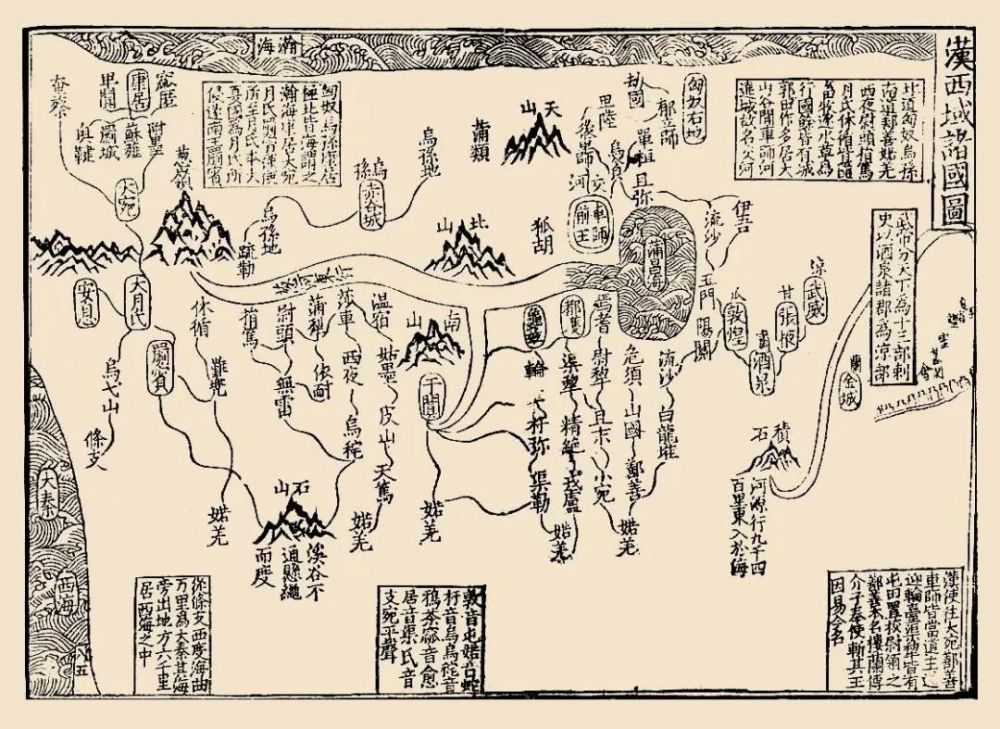 漢西域諸國圖
瀚海
南道鄯善婼羌
西夜尉頭捐篤
畜牧逐水草為
行國餘皆有城
郭田作多居大
山谷間車師河
武帝分天下為十三部刺
史以酒泉諸郡為涼部
匈奴右地
郁立師
劫國
卑陸
後車師
單桓
且弥
交河
車師前王
天山
蒲類
狐胡
伊吾
流沙
蒲昌海
玉門
陽關
敦煌
酒泉
甘
張掖
涼
武威
蘭
金城
積石
河源行九千四
百里東入於海
匈奴烏孫康居
極北皆海謂之
瀚海康居大宛
所至月氏本大
夏國為月氏所
侵遂南王罽賓
烏孫地
烏孫
赤谷城
烏孫地
疏勒
北山
南山
于闐
康居
奄蔡
卑闐
蘇薤
附墨
大宛
葱嶺
大月氏
安息
罽賓
烏弋山
條支
休循
難兜
婼羌
捐篤
尉頭
無雷
蒲犂
依耐
莎車
西夜
烏秅
溫宿
姑墨
皮山
天篤
婼羌
婼羌
龜茲
輪
杅弥
渠勒
渠犂
精絶
戎盧
婼羌
焉耆
尉犂
且末
小宛
危須
山國
鄯善
婼羌
流沙
白龍堆
石山
溪谷不
通懸繩
而度
大秦
西海
從條支西度海曲
万里為大秦其海
旁出地方六千里
居西海之中
敦音屯婼音蛇
杅音烏烏秅音
居音渠氏音
支宛平聲
漢使往大宛鄯善
車師皆當道主送
迎輪臺渠犂皆有
屯田置校尉領之
鄯善本名樓蘭傅
介子奉使斬其王
因易今名